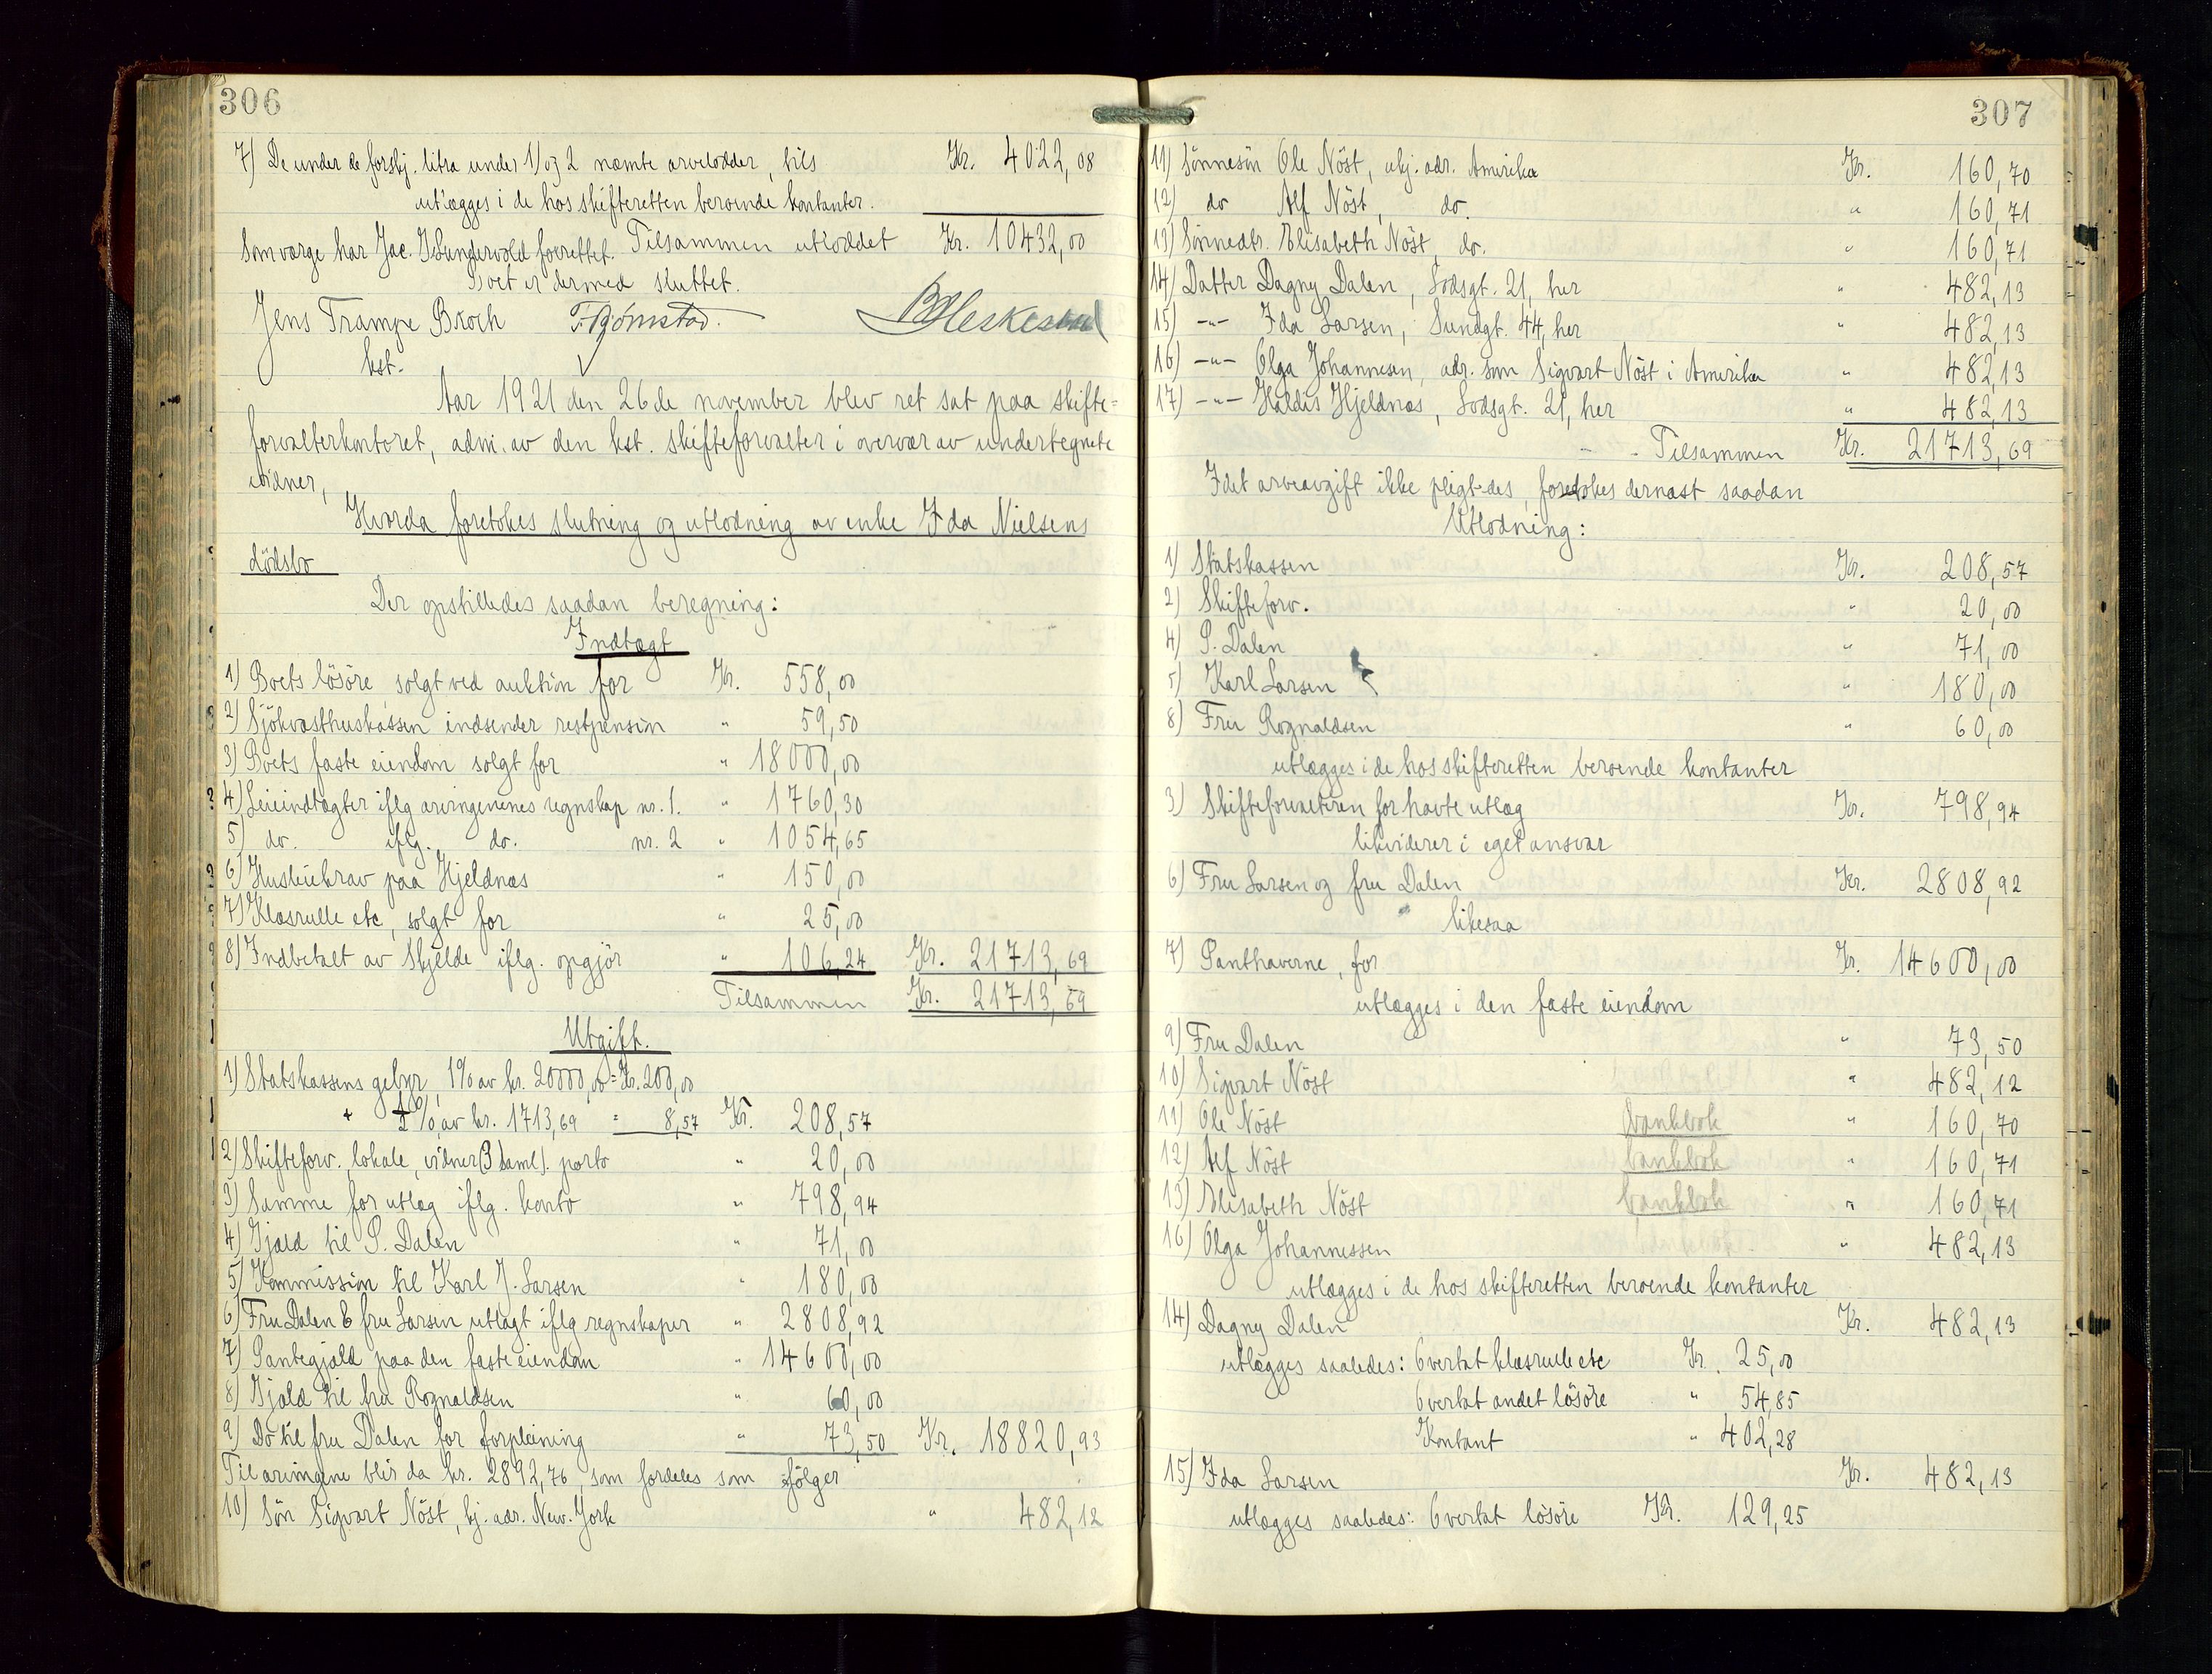 306
7) De under de forskj. litra under 1) og 2 nævnte arvelodder, tils Kr. 4022,08
utlægges i de hos skifteretten beroende kontanter.
Som værge har Jac. Sundervold forrettet. Tilsammen utloddet Kr. 10432,00
Boet er dermed sluttet.
Jens Trampe Broch F. Bjørnstad.
kst.
Aar 1921 den 26de november blev ret sat paa skifte=
forvalterkontoret, adm. av den kst. skifteforvalter i overvær av undertegnete
vidner,
Hvorda foretokes slutning og utlodning av enke Ida Nielsens
dödsbo
Der opstilledes saadan beregning:
Indtægt
1) Boets lösöre solgt ved auktion for Kr. 558,00
2) Sjökvasthuskassen indsender restpension " 59,50
3) Boets faste eiendom solgt for " 18000,00
4) Leieindtægter iflg arvingernes regnskap nr. 1. " 1760,30
5) do. iflg. do. nr. 2 " 1054,65
6) Husleiekrav paa Hjeldnæs " 150,00
7) Klæsrulle etc, solgt for " 25,00
8) Indbetalt av Skjelde iflg. opgjör " 106,24 Kr. 21713,69
Tilsammen Kr. 21713,69
Utgift.
1) Statskassens gebyr, 1% av kr. 20000,00 = Kr. 200,00
+ ½%, av kr. 1713,69 = 8,57 Kr. 208,57
2) Skifteforv. lokale, vidner (3 saml). porto " 20,00
3) Samme for utlæg iflg. konto " 798,94
4) Gjæld til P. Dalen " 71,00
5) Kommission til Karl J. Larsen " 180,00
6) Fru Dalen & fru Larsen utlagt iflg regnskaper " 2808,92
7) Pantegjæld paa den faste eiendom " 14600,00
8) Gjæld til fru Rognaldsen " 60,00
9) Do til fru Dalen for forpleining " 73,50 Kr. 18820,93
Til arvingene blir da kr. 2892,76, som fordeles som fölger
10) Sön Sigvart Nöst, bj. adr. New. York " 482,12
307
11) Sönnesön Ole Nöst, ubj. adr. Amerika Kr. 160,70
12) do Alf Nöst, do. " 160,71
13) Sönnedtr. Elisabeth Nöst, do. " 160,71
14) Datter Dagny Dalen, Lodsgt. 21, her " 482,13
15) -"- Ida Larsen, Sundgt. 44, her " 482,13
16) -"- Olga Johannesen, adr. som Sigvart Nöst i Amerika " 482,13
17) -"- Haldis Hjeldnæs, Lodsgt. 21, her " 482,13
Tilsammen Kr. 21713,69
Idet arveavgift ikke pligtedes, foretokes dernæst saadan
Utlodning:
1) Statskassen Kr. 208,57
2) Skifteforv. " 20,00
4) P. Dalen " 71,00
5) Karl Larsen " 180,00
8) Fru Rognaldsen " 60,00
utlægges i de hos skifteretten beroende kontanter
3) Skifteforvalteren for havte utlæg Kr. 798,94
likviderer i eget ansvar
6) Fru Larsen og fru Dalen Kr. 2808,92
" likesaa
7) Panthaverne, for Kr. 14600,00
utlægges i den faste eiendom
9) Fru Dalen " 73,50
10) Sigvart Nöst " 482,12
11) Ole Nöst bankbok " 160,70
12) Alf Nöst bankbok " 160,71
13) Elisabeth Nöst bankbok " 160,71
16) Olga Johannessen " 482,13
utlægges i de hos skifteretten beroende kontanter
14) Dagny Dalen Kr. 482,13
utlægges saaledes: Overtat klæsrulle etc Kr. 25,00
Overtat andet lösöre " 54,85
Kontant " 402,28
15) Ida Larsen Kr. 482,13
utlægges saaledes: Overtat lösöre Kr. 129,25